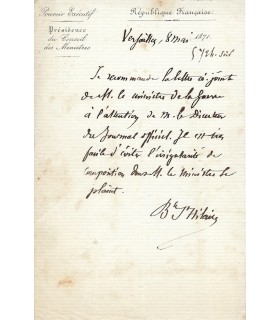 Pouvoir Exécutif
République Française.
Présidence
du Conseil
des Ministres
Versailles, 8 mai 1871.
Je recommande la lettre ci-jointe
de M. le ministre de la Guerre
à l'attention de M. le Directeur
du Journal officiel. Il est très
facile d'éviter l'irrégularité de
composition dont M. le Ministre se
plaint.
Bth St Hilaire